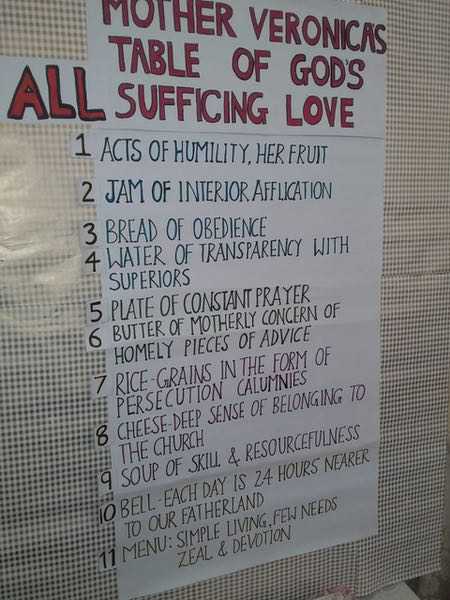 MOTHER VERONICA'S
TABLE OF GOD'S
ALL SUFFICING LOVE
1 ACTS OF HUMILITY, HER FRUIT
2 JAM OF INTERIOR AFFLICATION
3 BREAD OF OBEDIENCE
4 WATER OF TRANSPARENCY WITH
SUPERIORS
5 PLATE OF CONSTANT PRAYER
6 BUTTER OF MOTHERLY CONCERN OF
HOMELY PIECES OF ADVICE
7 RICE-GRAINS IN THE FORM OF
PERSECUTION CALUMNIES
8 CHEESE-DEEP SENSE OF BELONGING TO
THE CHURCH
9 SOUP OF SKILL & RESOURCEFULNESS
10 BELL-EACH DAY IS 24 HOURS NEARER
TO OUR FATHERLAND
11 MENU: SIMPLE LIVING, FEW NEEDS
ZEAL & DEVOTION